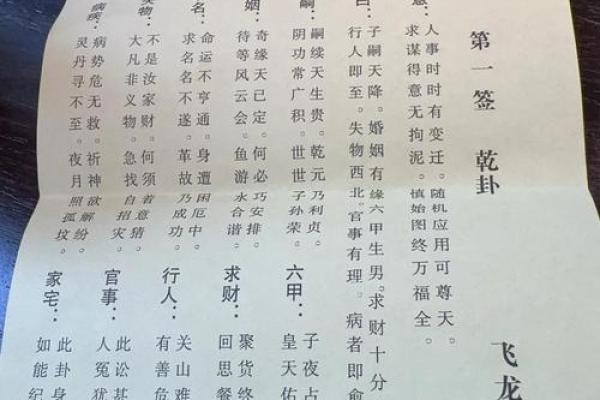 第一签 乾卦
飞龙
意：
人事时时有变迁。随机应用可尊天。
求谋得意无拘泥。慎始图终万福全。
曰：
子嗣天降。婚姻有缘。六甲生男。求财十分
行人即至。失物西北。官事有理。病者即愈
嗣：
嗣续天生贵。乾元乃利贞。
阴功常广积。世世子孙荣。
姻：
奇缘天已定。何必巧安排。
待等风云会。鱼游水合谐。
名：
命运不亨通。身遭困厄中。
求名名不遂。革故乃成功。
失物：
不是汝家财。何须着意猜。
大凡非义物。急找自招灾。
病疾：
病势危无救。祈神欲解纷。
灵丹寻不至。夜月照孤坟。
六甲：
子夜占
皇天佑
求财：
聚货终
回思餐
行人：
关山难
有善危
官事：
此讼甚
人冤犹
家宅：
此卦身
如能纪